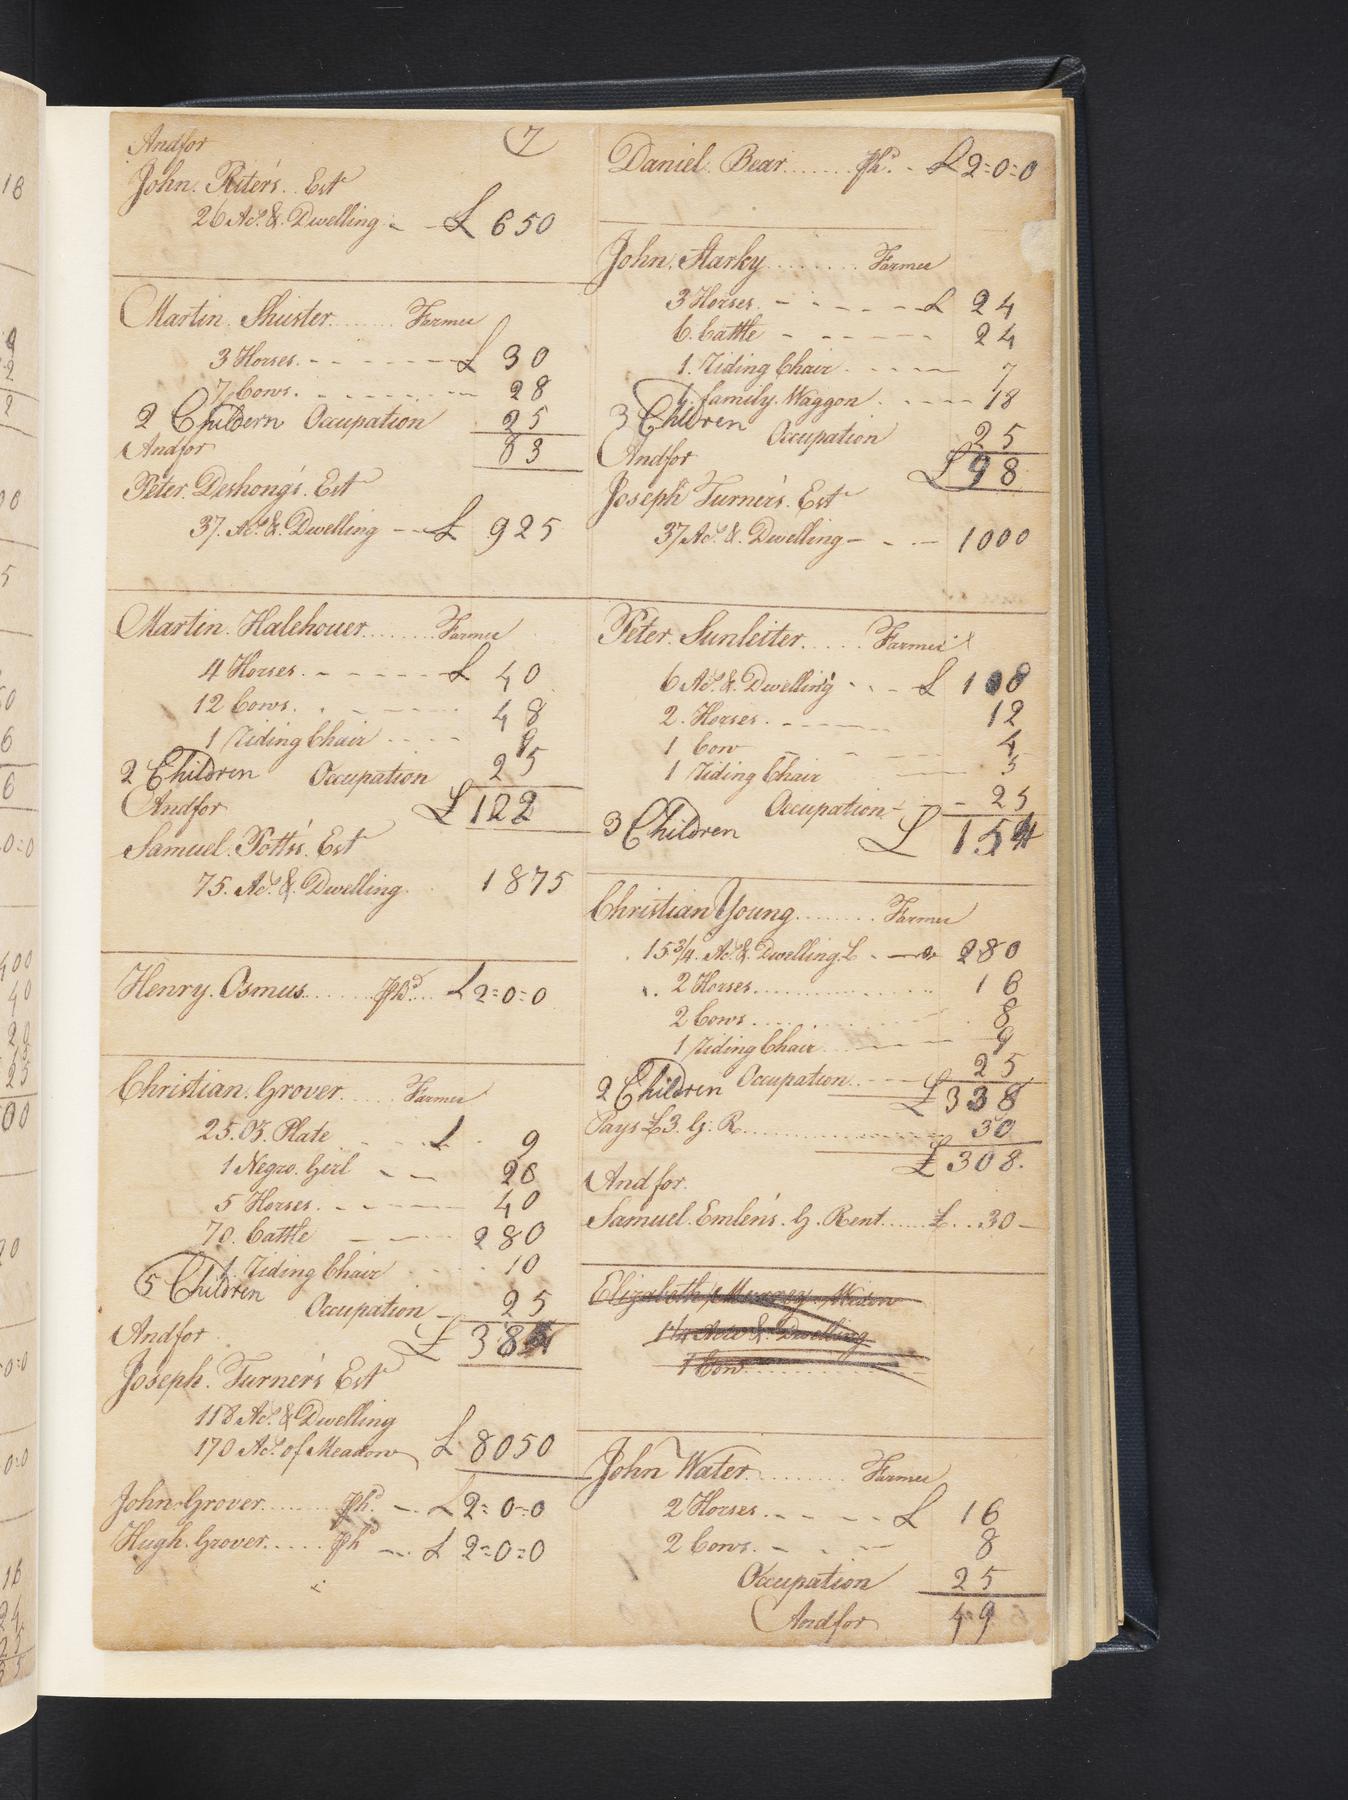 Andfor
7
John. Riter's. Est
26 Acs. & Dwelling £ 650
Martin. Shuster Farmer
3 Horses. £ 30
7 Cows. 28
2 Childern Occupation 25
Andfor 83
Peter. Deshong's. Est
37. Acs. & Dwelling £ 925
Martin. Halehouer Farmer
4 Horses. £ 40
12 Cows. 48
1 Riding Chair 9
2 Children Occupation 25
Andfor £ 122
Samuel. Potts's. Est
75. Acs. & Dwelling. 1875
Henry. Osmus Phd £ 2=0=0
Christian. Grover Farmer
25. Oz. Plate £ 9
1 Negro. Girl 20
5 Horses. 40
70. Cattle 280
1. Riding Chair 10
5 Children Occupation 25
Andfor £ 384
Joseph. Turner's Est
118 Acs. & Dwelling
170 Acs. of Meadow £ 8050
John. Grover Phd. £ 2=0=0
Hugh. Grover Phd £ 2=0=0
Daniel. Bear Phd. £ 2=0=0
John. Starky Farmer
3 Horses. £ 24
6. Cattle 24
1. Riding Chair 7
1. family. Waggon 18
3 Children Occupation 25
Andfor £ 98
Joseph Turner's. Est
37 Acs. & Dwelling 1000
Peter. Sunleiter Farmer
6 Acs. & Dwelling £ 108
2. Horses. 12
1 Cow 4
1 Riding Chair 5
Occupation 25
3 Children £ 154
Christian Young Farmer
15 3/4. Acs. & Dwelling £ 280
2 Horses 16
2 Cows 8
1 Riding Chair 9
2 Children Occupation 25
£ 338
Pays £3. G. R. 30
£ 308.
Andfor.
Samuel. Emlen's. G. Rent £ 30
Elizabeth Widow
1 1/4 Acre & Dwelling
1 Cow
John Water Farmer
2 Horses £ 16
2 Cows. 8
Occupation 25
Andfor 49